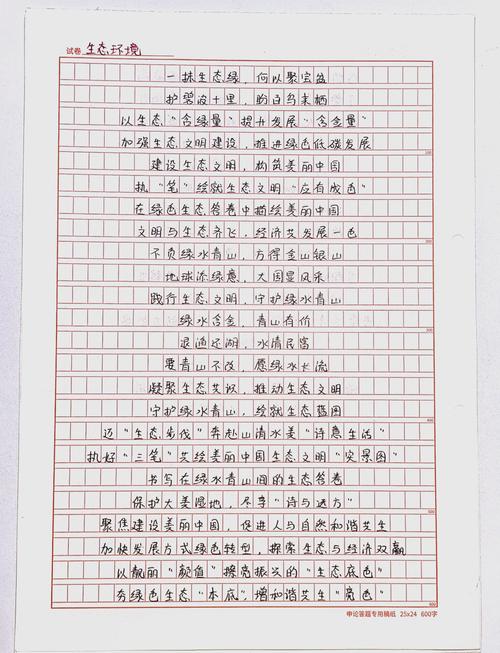 试卷 生态环境
一抹生态绿，何以聚宝盆
护碧波十里，盼百鸟来栖
以生态“含绿量”提升发展“含金量”
加强生态文明建设，推进绿色低碳发展
100
建设生态文明，构筑美丽中国
执“笔”绘就生态文明“应有成色”
在绿色生态答卷中描绘美丽中国
文明与生态齐飞，经济共发展一色
200
不负绿水青山，方得金山银山
地球添绿意，大国显风采
践行生态文明，守护绿水青山
绿水含金，青山有价
300
退渔还湖，水清民富
要青山不改，愿绿水长流
凝聚生态共识，推动生态文明
守护绿水青山，绘就生态蓝图
400
迈“生态步伐”奔赴山清水美“诗意生活”
执好“三笔”共绘美丽中国生态文明“实景图”
书写在绿水青山间的生态答卷
保护大美湿地，尽享“诗与远方”
500
聚焦建设美丽中国，促进人与自然和谐共生
加快发展方式绿色转型，探索生态与经济双赢
以靓丽“颜值”擦亮振兴的“生态底色”
夯绿色生态“本底”，增和谐共生“亮色”
600
申论答题专用稿纸 25x24 600字